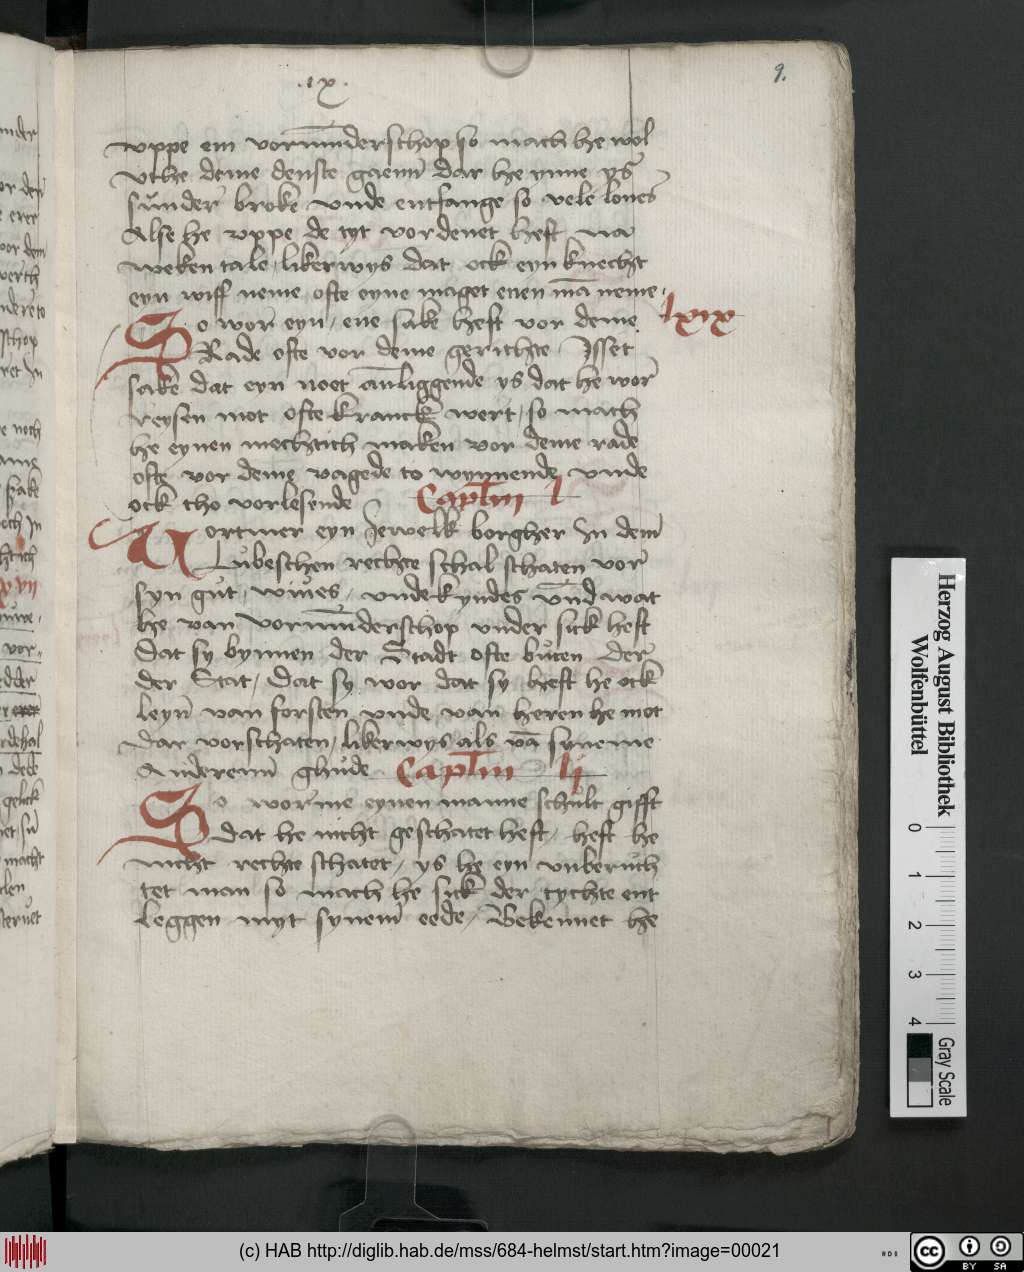 .ix.
9.
vppe ein vormūnderschop so mach he wol
vthe deme denste gaenn dar he ynne ys
sunder broke vnde entfange so vele lones
Alse he vppe de tyt vordenet heft na
weken tale, likerwys dat ock eyn knecht
eyn wiff neme ofte eyne maget enen mā neme.
So wor eyn, ene sake heft vor deme lxix
Rade ofte vor deme gerichte Isset
sake dat eyn noet anliggende ys dat he wor
reysen mot ofte kranck wert, so mach
he eynen mechtich maken vor deme rade
ofte vor deme vagede to wynnende vnde
ock tho vorlesende Caplm l
Vortmer eyn Jewelk borgher In dem
Lubeschen rechte schal schaten vor
syn gut, wiues, vnde kyndes vnd wat
he van vormūnderschop vnder sick heft
Dat sy bynnen der Stadt ofte buten der
der Stat, Dat sy wor dat sy heft he ock
leyn van forsten vnde van heren he mot
Dar vorschaten, likerwys als vā syneme
Anderenn ghude Caplm lj
So worme eynen manne schult gifft
dat he nicht geschatet heft, heft he
nicht rechte schatet, ys he eyn vnberuch
tet man so mach he sick der tychte ent
leggen myt synem eede, Bekennet he
Herzog August Bibliothek
Wolfenbüttel
0 1 2 3 4
Gray Scale
(c) HAB http://diglib.hab.de/mss/684-helmst/start.htm?image=00021
cc BY SA